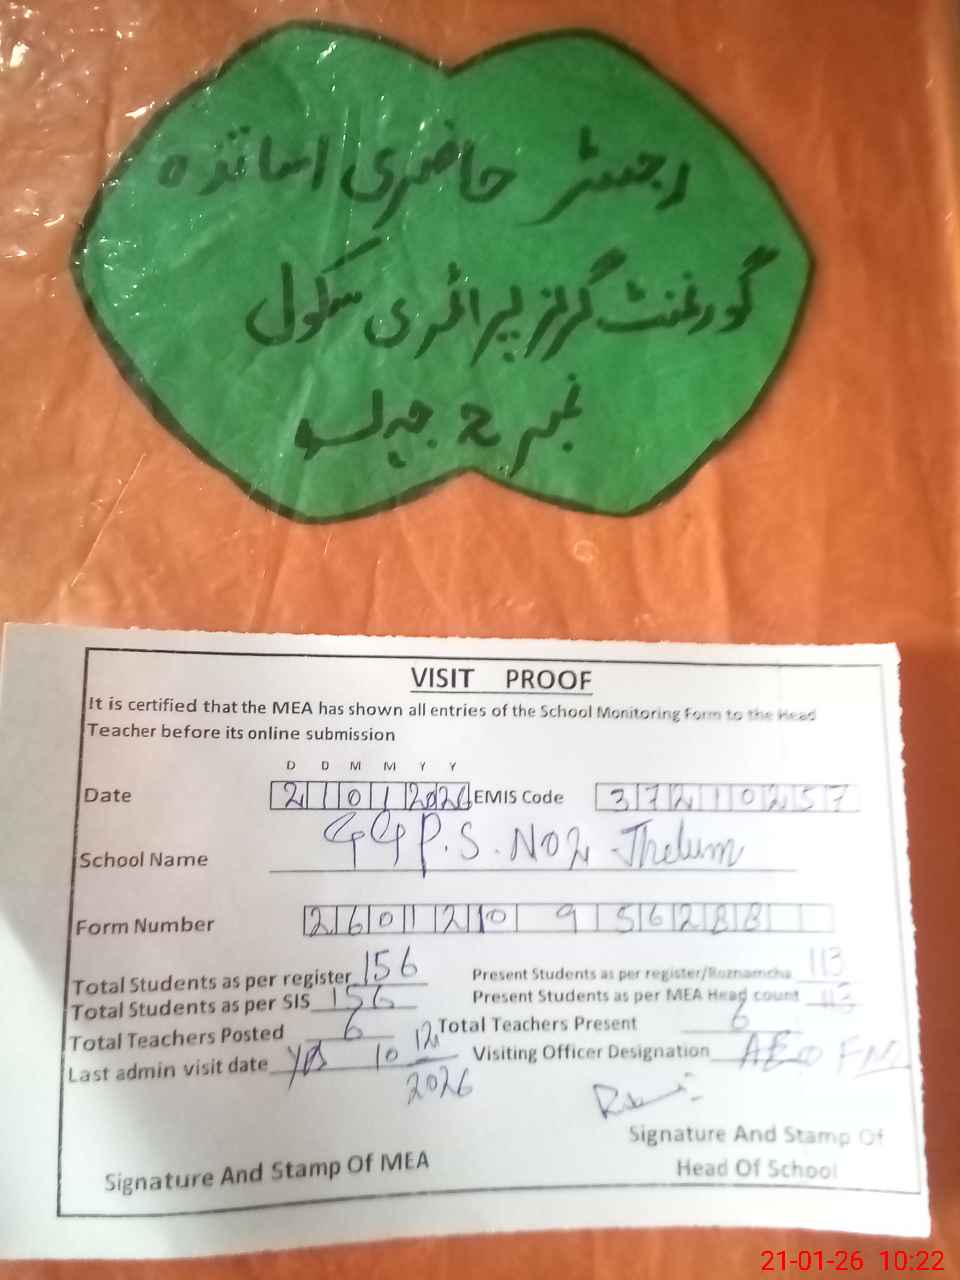 رجسٹر حاضری اساتذہ
گورنمنٹ گرلز پرائمری سکول
نمبر 2 جہلم
VISIT PROOF
It is certified that the MEA has shown all entries of the School Monitoring Form to the Head
Teacher before its online submission
D D M M Y Y
Date 21 01 2026 EMIS Code 37210257
School Name GGP.S. NO 2 Jhelum
Form Number 2601210956288
Total Students as per register 156 Present Students as per register/Roznamcha 113
Total Students as per SIS 156 Present Students as per MEA Head count 113
Total Teachers Posted 6 Total Teachers Present 6
Last admin visit date yes 10 12 2026 Visiting Officer Designation AEO
Signature And Stamp Of MEA
Signature And Stamp Of
Head Of School
21-01-26 10:22